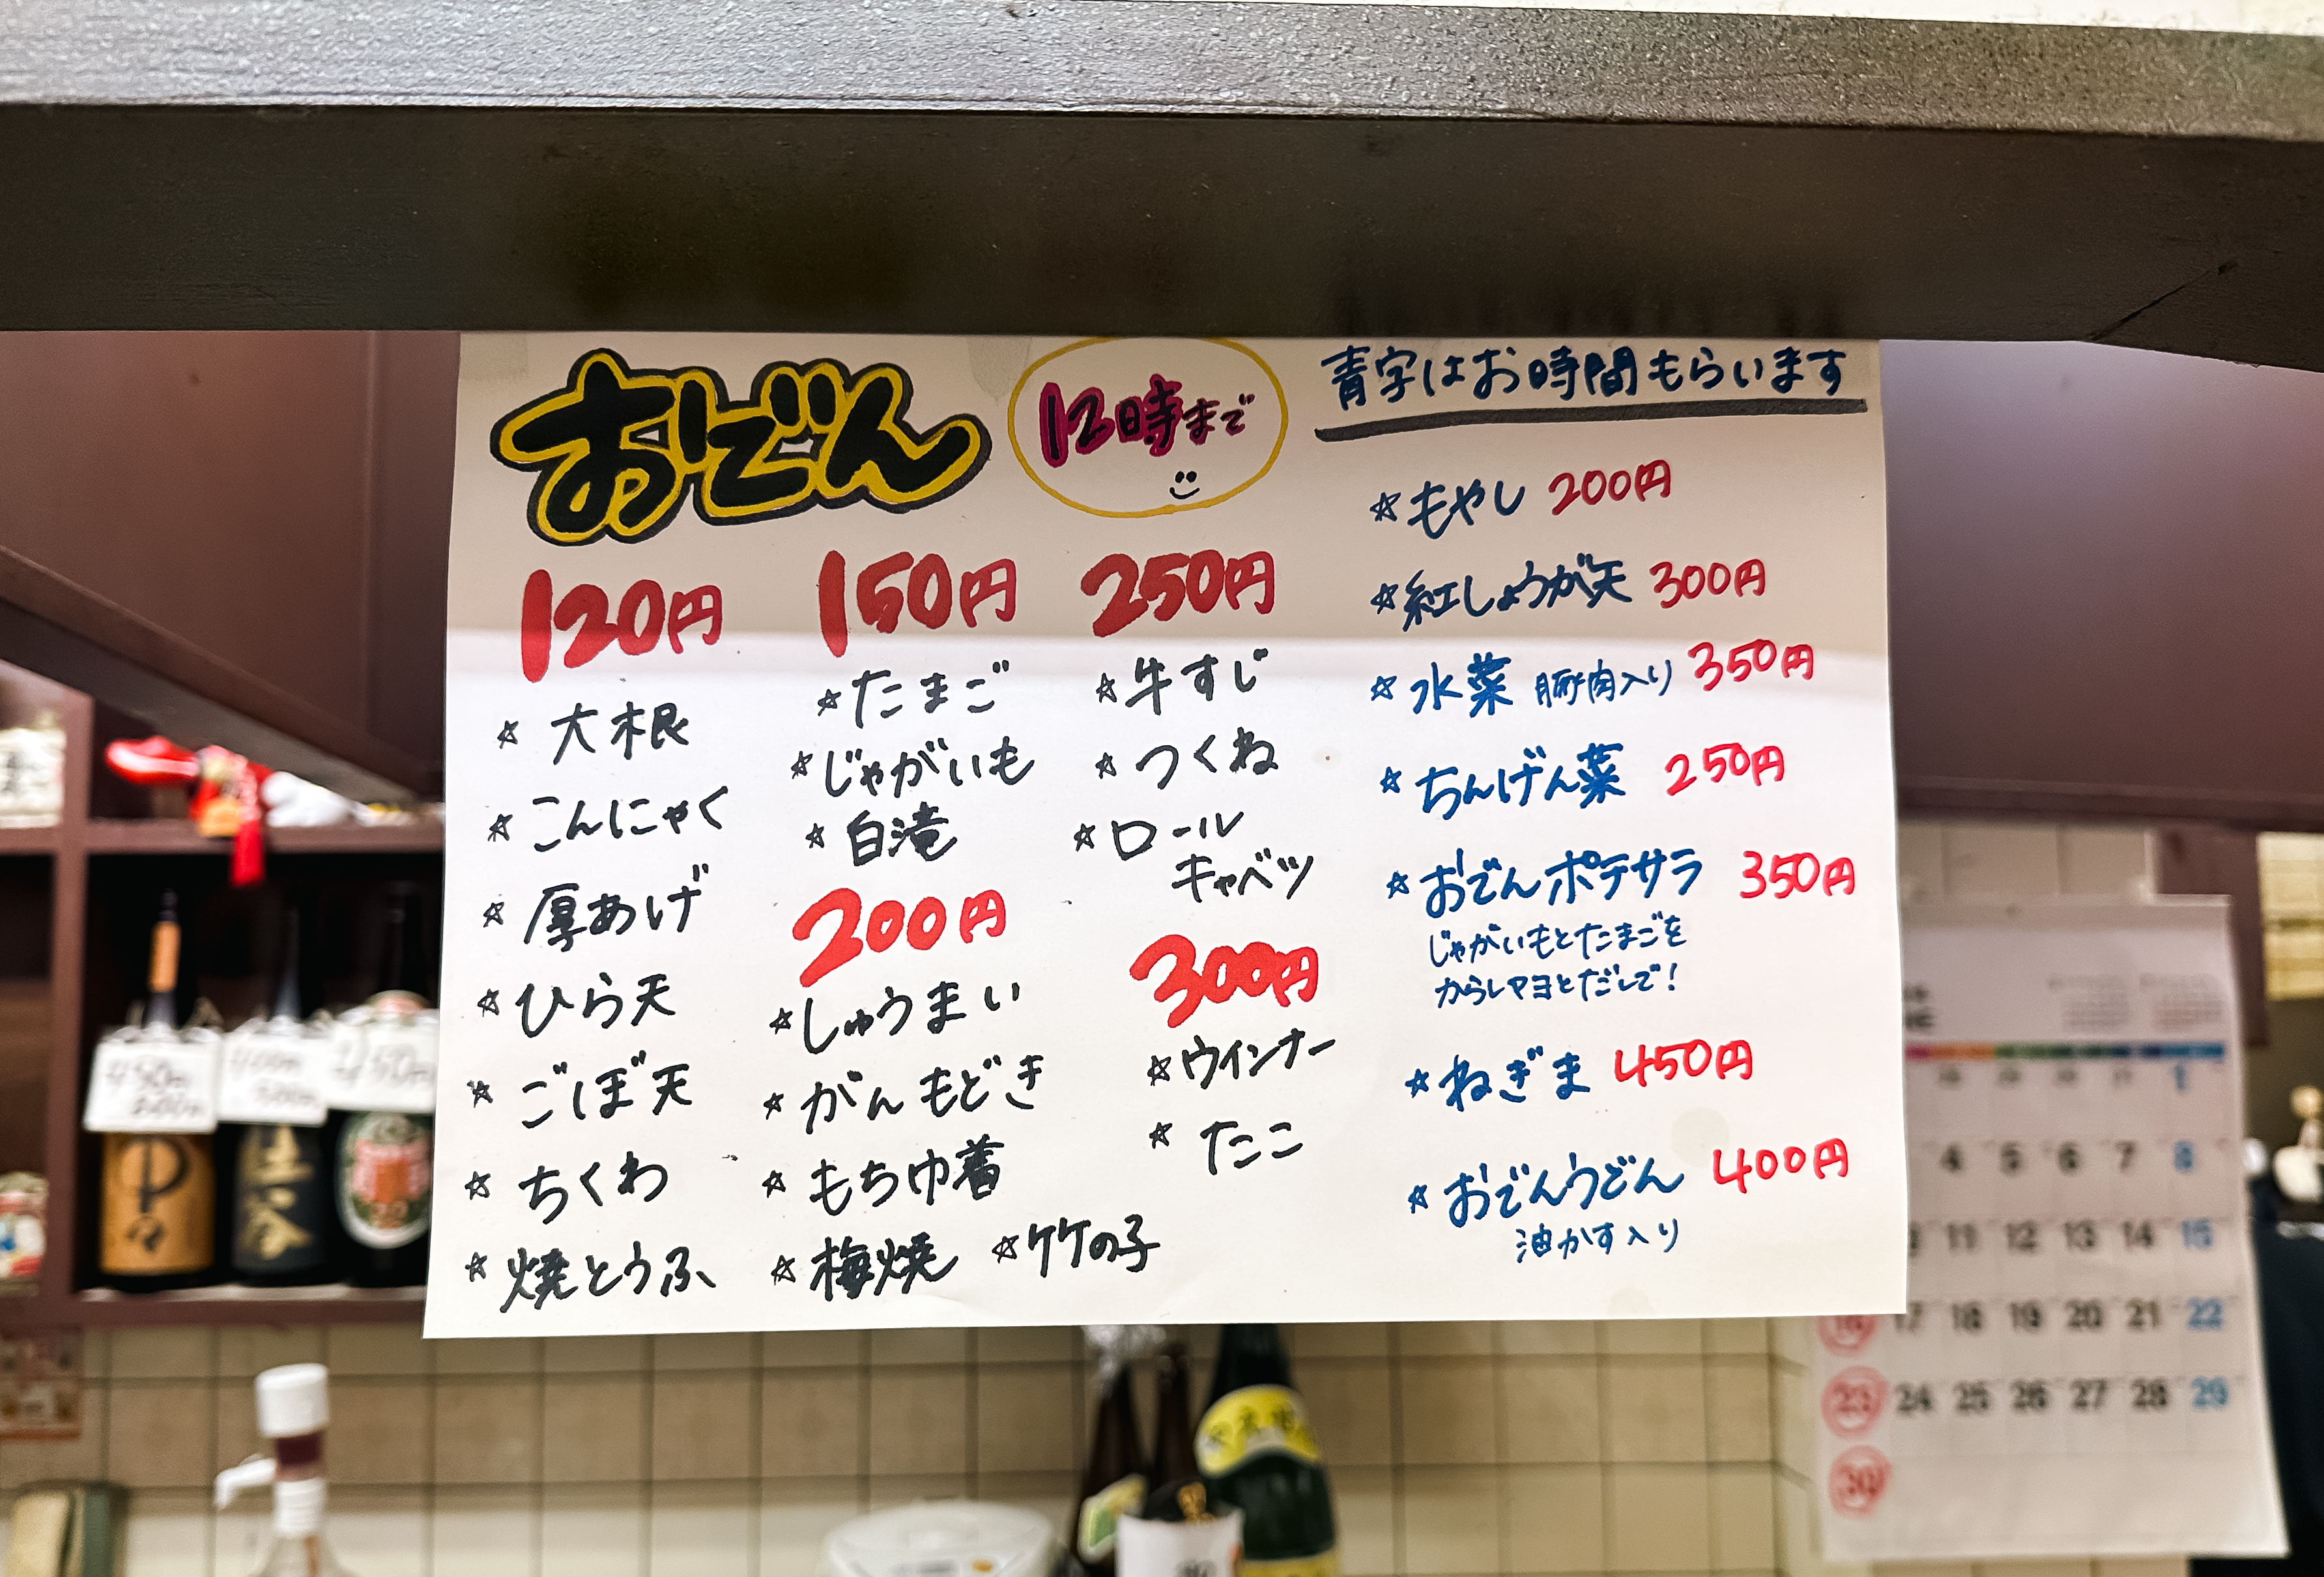 おでん
12時まで
120円
☆大根
☆こんにゃく
☆厚あげ
☆ひら天
☆ごぼ天
☆ちくわ
☆焼とうふ
150円
☆たまご
☆じゃがいも
☆白滝
200円
☆しゅうまい
☆がんもどき
☆もち巾着
☆梅焼 ☆竹の子
250円
☆牛すじ
☆つくね
☆ロール
キャベツ
300円
☆ウインナー
☆たこ
青字はお時間もらいます
☆もやし 200円
☆紅しょうが天 300円
☆水菜 豚肉入り 350円
☆ちんげん菜 250円
☆おでんポテサラ 350円
じゃがいもとたまごを
からしマヨとだしで!
☆ねぎま 450円
☆おでんうどん 400円
油かす入り
4 5 6 7 8
11 12 13 14 15
16 17 18 19 20 21 22
23 24 25 26 27 28 29
30